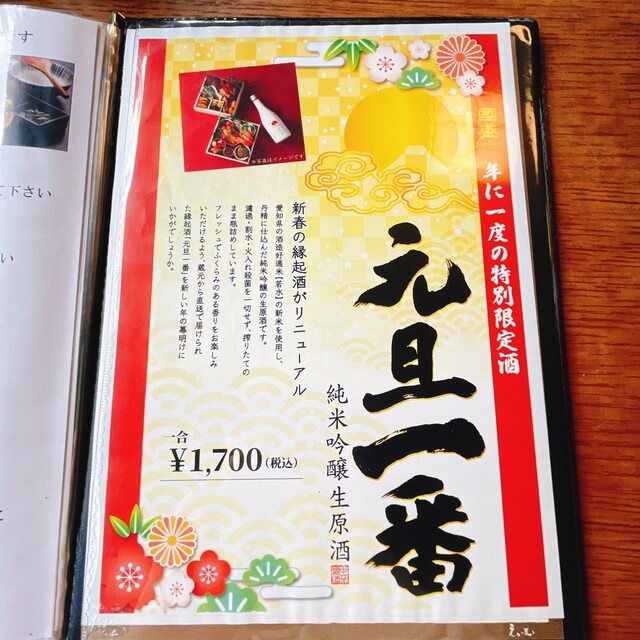 國盛
年に一度の特別限定酒
元旦一番
純米吟醸生原酒
※写真はイメージです
新春の縁起酒がリニューアル
愛知県の酒造好適米【若水】の新米を使用し、
丹精に仕込んだ純米吟醸の生原酒です。
濾過・割水・火入れ殺菌を一切せず、搾りたての
まま瓶詰めしています。
フレッシュでふくらみのある香りをお楽しみ
いただけるよう、蔵元から直送で届けられ
た縁起酒「元旦一番」を新しい年の幕明けに
いかがでしょうか。
一合
¥1,700(税込)
す
て下さい
い